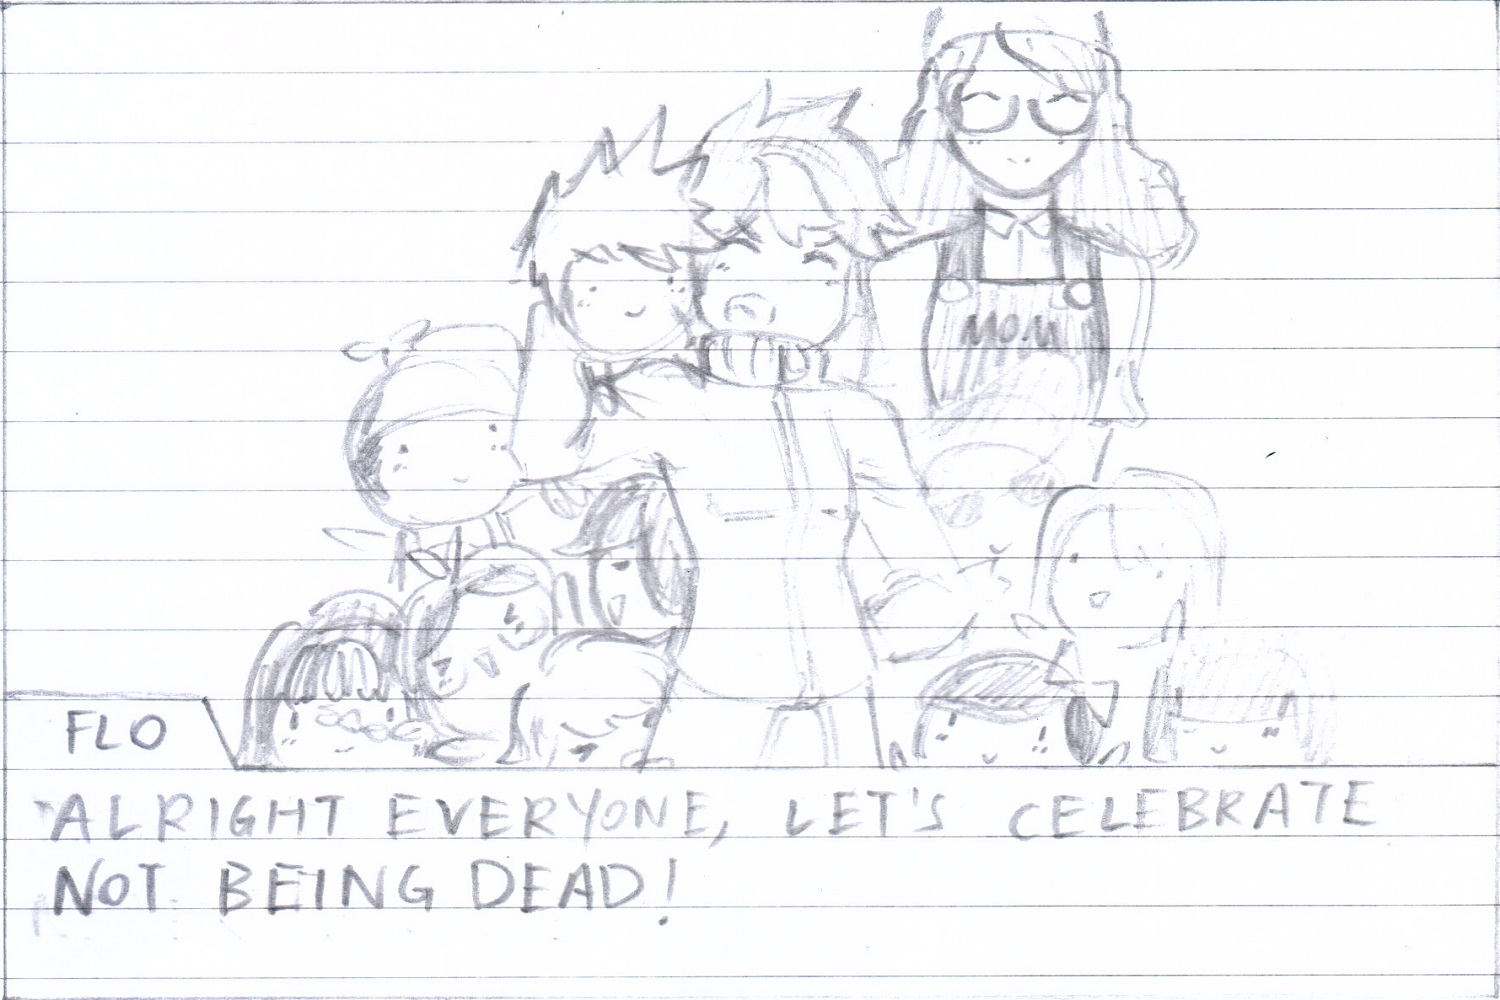 MOM
FLO
ALRIGHT EVERYONE, LET'S CELEBRATE
NOT BEING DEAD!